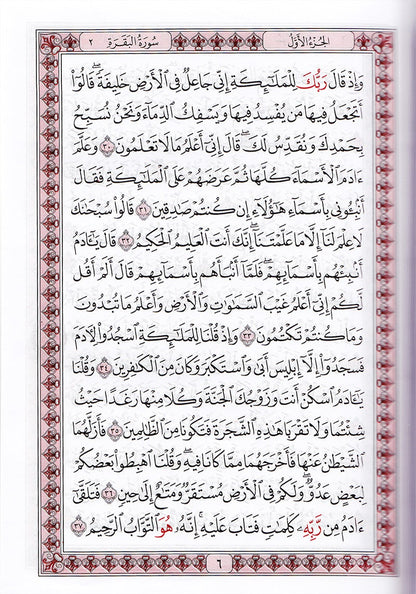 الجزء الأول
سورة البقرة ٢
وَإِذۡ قَالَ رَبُّكَ لِلۡمَلَٰٓئِكَةِ إِنِّي جَاعِلٞ فِي ٱلۡأَرۡضِ خَلِيفَةٗۖ قَالُوٓاْ
أَتَجۡعَلُ فِيهَا مَن يُفۡسِدُ فِيهَا وَيَسۡفِكُ ٱلدِّمَآءَ وَنَحۡنُ نُسَبِّحُ
بِحَمۡدِكَ وَنُقَدِّسُ لَكَۖ قَالَ إِنِّيٓ أَعۡلَمُ مَا لَا تَعۡلَمُونَ ٣٠ وَعَلَّمَ
ءَادَمَ ٱلۡأَسۡمَآءَ كُلَّهَا ثُمَّ عَرَضَهُمۡ عَلَى ٱلۡمَلَٰٓئِكَةِ فَقَالَ
أَنۢبِـُٔونِي بِأَسۡمَآءِ هَٰٓؤُلَآءِ إِن كُنتُمۡ صَٰدِقِينَ ٣١ قَالُواْ سُبۡحَٰنَكَ
لَا عِلۡمَ لَنَآ إِلَّا مَا عَلَّمۡتَنَآۖ إِنَّكَ أَنتَ ٱلۡعَلِيمُ ٱلۡحَكِيمُ ٣٢ قَالَ يَٰٓـَٔادَمُ
أَنۢبِئۡهُم بِأَسۡمَآئِهِمۡۖ فَلَمَّآ أَنۢبَأَهُم بِأَسۡمَآئِهِمۡ قَالَ أَلَمۡ أَقُل
لَّكُمۡ إِنِّيٓ أَعۡلَمُ غَيۡبَ ٱلسَّمَٰوَٰتِ وَٱلۡأَرۡضِ وَأَعۡلَمُ مَا تُبۡدُونَ
وَمَا كُنتُمۡ تَكۡتُمُونَ ٣٣ وَإِذۡ قُلۡنَا لِلۡمَلَٰٓئِكَةِ ٱسۡجُدُواْ لِأٓدَمَ
فَسَجَدُوٓاْ إِلَّآ إِبۡلِيسَ أَبَىٰ وَٱسۡتَكۡبَرَ وَكَانَ مِنَ ٱلۡكَٰفِرِينَ ٣٤ وَقُلۡنَا
يَٰٓـَٔادَمُ ٱسۡكُنۡ أَنتَ وَزَوۡجُكَ ٱلۡجَنَّةَ وَكُلَا مِنۡهَا رَغَدًا حَيۡثُ
شِئۡتُمَا وَلَا تَقۡرَبَا هَٰذِهِ ٱلشَّجَرَةَ فَتَكُونَا مِنَ ٱلظَّٰلِمِينَ ٣٥ فَأَزَلَّهُمَا
ٱلشَّيۡطَٰنُ عَنۡهَا فَأَخۡرَجَهُمَا مِمَّا كَانَا فِيهِۖ وَقُلۡنَا ٱهۡبِطُواْ بَعۡضُكُمۡ
لِبَعۡضٍ عَدُوّٞۖ وَلَكُمۡ فِي ٱلۡأَرۡضِ مُسۡتَقَرّٞ وَمَتَٰعٌ إِلَىٰ حِينٖ ٣٦ فَتَلَقَّىٰٓ
ءَادَمُ مِن رَّبِّهِۦ كَلِمَٰتٖ فَتَابَ عَلَيۡهِۚ إِنَّهُۥ هُوَ ٱلتَّوَّابُ ٱلرَّحِيمُ ٣٧
٦